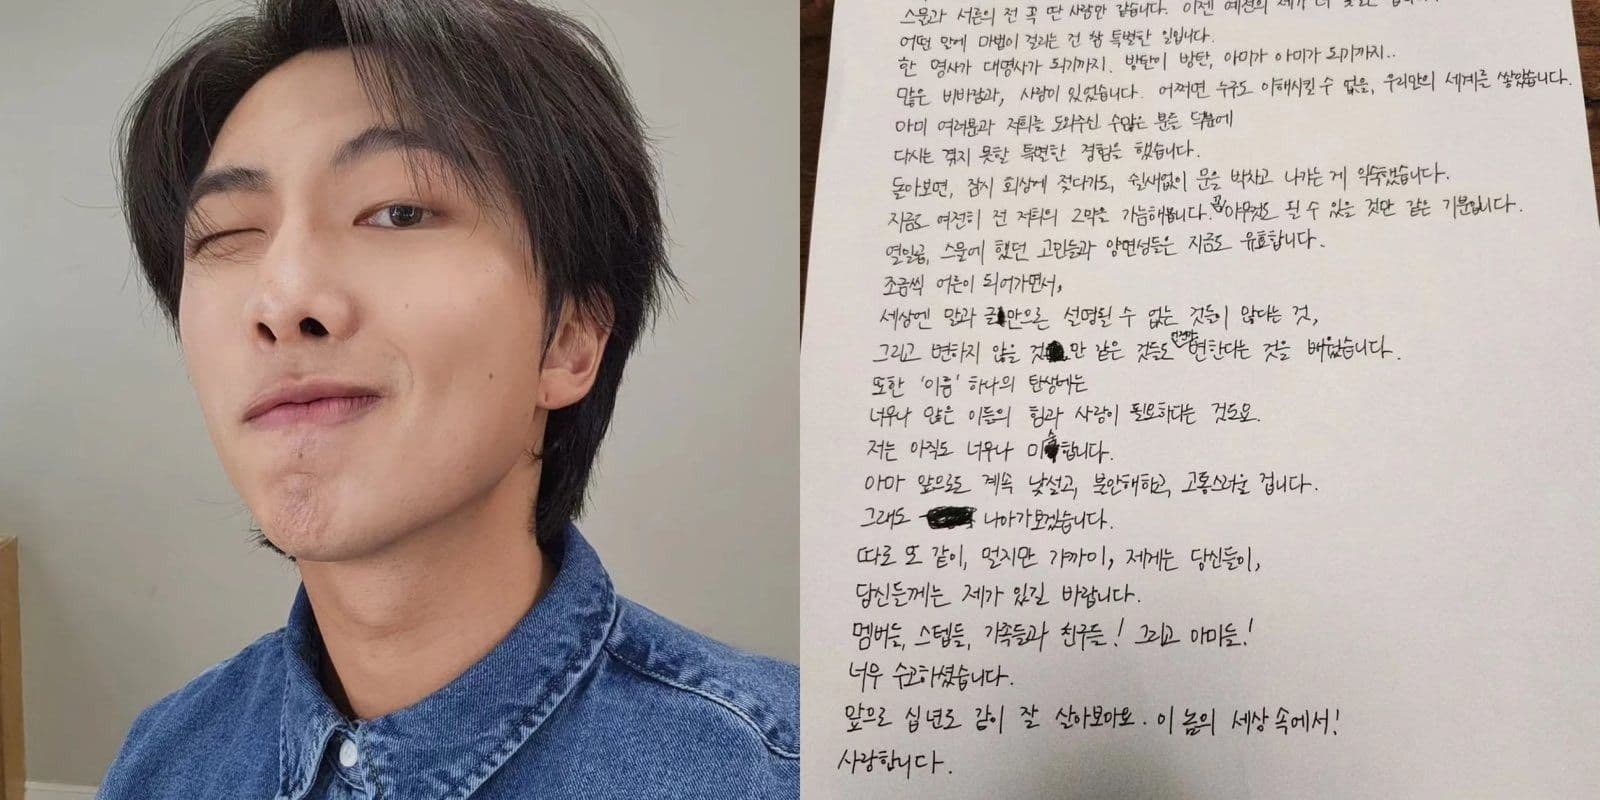 스물과 서른의 전 꼭 딴 사람만 같습니다. 이젠 예전의 제가 더
어떤 만에 마법이 걸리는 건 참 특별한 일입니다.
한 명사가 대명사가 되기까지. 방탄이 방탄, 아미가 아미가 되기까지..
많은 비바람과, 사랑이 있었습니다. 어쩌면 누구도 이해시킬 수 없을, 우리만의 세계를 쌓았습니다.
아미 여러분과 저희를 도와주신 수많은 분들 덕분에
다시는 겪지 못할 특별한 경험을 했습니다.
돌아보면, 잠시 회상에 젖다가도, 쉴새없이 문을 박차고 나가는 게 익숙했습니다.
지금도 여전히 전 저희의 2막을 가늠해봅니다. 꼭 아무것도 될 수 있을 것만 같은 기분입니다.
열일곱, 스물에 했던 고민들과 양면성들은 지금도 유효합니다.
조금씩 어른이 되어가면서,
세상엔 말과 글만으론 설명될 수 없는 것들이 많다는 것,
그리고 변하지 않을 것만 같은 것들도 변한다는 것을 배웠습니다.
또한 '이름' 하나의 탄생에는
너무나 많은 이들의 힘과 사랑이 필요하다는 것도요.
저는 아직도 너무나 미숙합니다.
아마 앞으로도 계속 낯설고, 불안해하고, 고통스러울 겁니다.
그래도 나아가보겠습니다.
따로 또 같이, 멀지만 가까이, 제게는 당신들이,
당신들께는 제가 있길 바랍니다.
멤버들, 스텝들, 가족들과 친구들! 그리고 아미들!
너무 수고하셨습니다.
앞으로 십 년도 같이 잘 살아보아요. 이 놈의 세상 속에서!
사랑합니다.